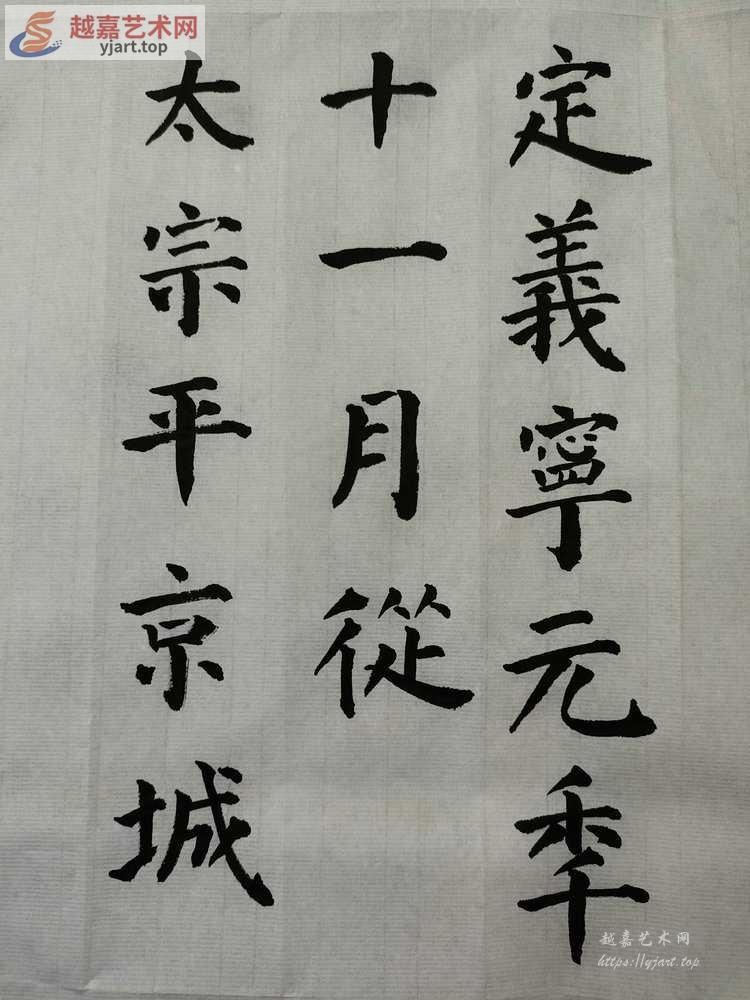 越嘉艺术网
yjart.top
定義寧元秊
十一月從
太宗平京城
越嘉艺术网
https://yjart.top